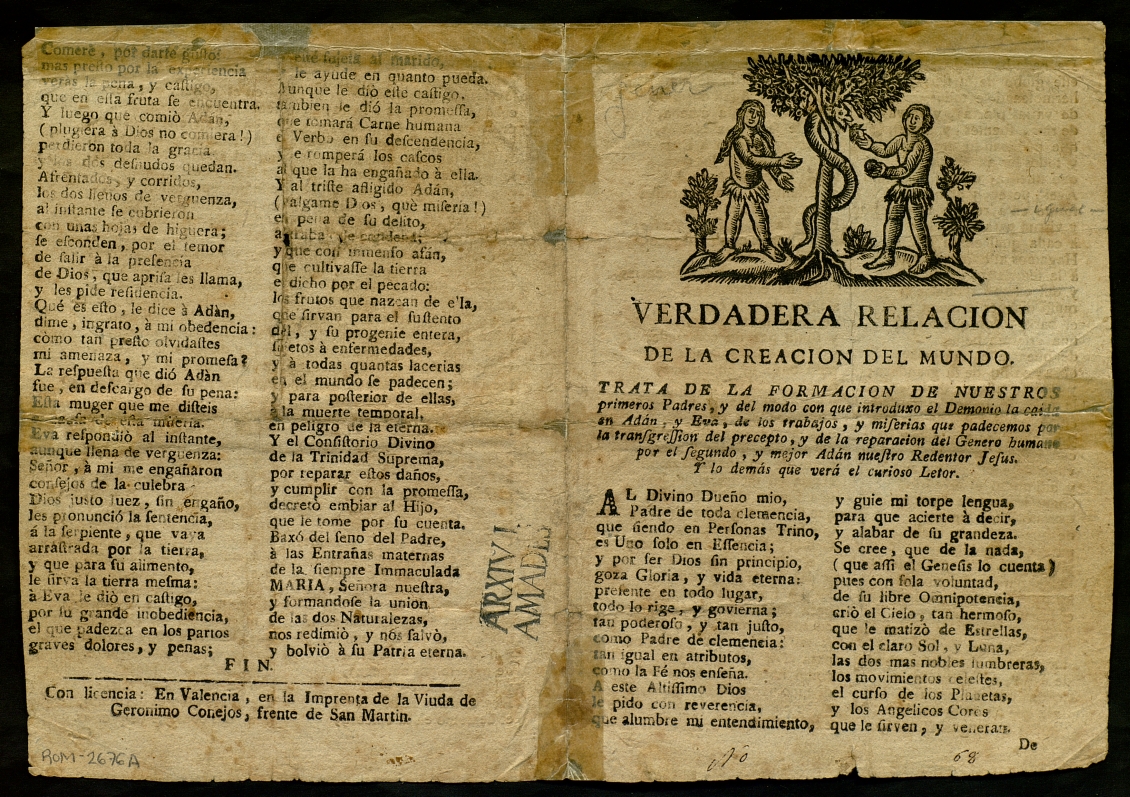 Comerè, por darte guſto:
mas preſto por la experiencia
veràs la pena, y caſtigo,
que en eſſa fruta ſe encuentra.
Y luego que comiò Adàn,
( plugiera à Dios no comiera ! )
perdieron toda la gracia
y los dos deſnudos quedan.
Afrentados, y corridos,
los dos llenos de verguenza,
al inſtante ſe cubrieron
con unas hojas de higuera;
ſe eſconden, por el temor
de ſalir à la preſencia
de Dios, que apriſa les llama,
y les pide reſidencia.
Què es eſto, le dice à Adàn,
dime, ingrato, à mi obedencia:
còmo tan preſto olvidaſtes
mi amenaza, y mi promeſa?
La reſpueſta que diò Adàn
fue, en deſcargo de ſu pena:
Eſta muger que me diſteis
cauſa de eſta miſeria.
Eva reſpondiò al inſtante,
aunque llena de verguenza:
Señor, à mi me engañaron
conſejos de la culebra
Dios juſto Juez, ſin engaño,
les pronunciò la ſentencia,
à la ſerpiente, que vaya
arraſtrada por la tierra,
y que para ſu alimento,
le ſirva la tierra meſma:
à Eva le diò en caſtigo,
por ſu grande inobediencia,
el que padezca en los partos
graves dolores, y penas;
eſtè ſujeta al marido,
le ayude en quanto pueda.
Aunque le diò eſte caſtigo,
tambien le diò la promeſſa,
que tomarà Carne humana
el Verbo en ſu deſcendencia,
y le romperà los caſcos
al que la ha engañado à ella.
Y al triſte afligido Adán,
( valgame Dios, què miſeria ! )
en pena de ſu delito,
à trabajo le condena;
y que con inmenſo afán,
que cultivaſſe la tierra
e dicho por el pecado:
los frutos que nazcan de e'la,
que ſirvan para el ſuſtento
del, y ſu progenie entera,
ſujetos à enfermedades,
y à todas quantas lacerias
en el mundo ſe padecen;
y para poſterior de ellas,
à la muerte temporal,
en peligro de la eterna.
Y el Conſiſtorio Divino
de la Trinidad Suprema,
por reparar eſtos daños,
y cumplir con la promeſſa,
decretò embiar al Hijo,
que le tome por ſu cuenta.
Baxó del ſeno del Padre,
à las Entrañas maternas
de la ſiempre Immaculada
MARIA, Señora nueſtra,
y formandoſe la union
de las dos Naturalezas,
nos redimiò, y nos ſalvò,
y bolviò à ſu Patria eterna.
FIN.
Con licencia: En Valencia, en la Imprenta de la Viuda de
Geronimo Conejos, frente de San Martin.
ROM-2676A
ARXIV J.
AMADES
VERDADERA RELACION
DE LA CREACION DEL MUNDO.
TRATA DE LA FORMACION DE NUESTROS
primeros Padres, y del modo con que introduxo el Demonio la caida
en Adán, y Eva, de los trabajos, y miſerias que padecemos por
la tranſgreſſion del precepto, y de la reparacion del Genero humano
por el ſegundo, y mejor Adán nueſtro Redentor Jeſus.
Y lo demás que verá el curioso Letor.
AL Divino Dueño mio,
Padre de toda clemencia,
que ſiendo en Perſonas Trino,
es Uno ſolo en Eſſencia;
y por ſer Dios ſin principio,
goza Gloria, y vida eterna:
preſente en todo lugar,
todo lo rige, y govierna;
tan poderoſo, y tan juſto,
como Padre de clemencia:
tan igual en atributos,
como la Fé nos enſeña.
A eſte Altiſſimo Dios
le pido con reverencia,
que alumbre mi entendimiento,
y guie mi torpe lengua,
para que acierte à decir,
y alabar de ſu grandeza.
Se cree, que de la nada,
( que aſſi el Geneſis lo cuenta )
pues con ſola voluntad,
de ſu libre Omnipotencia,
criò el Cielo, tan hermoſo,
que le matizò de Eſtrellas,
con el claro Sol, y Luna,
las dos mas nobles lumbreras,
los movimientos celeſtes,
el curſo de los Planetas,
y los Angelicos Coros
que le ſirven, y veneran.
De
68